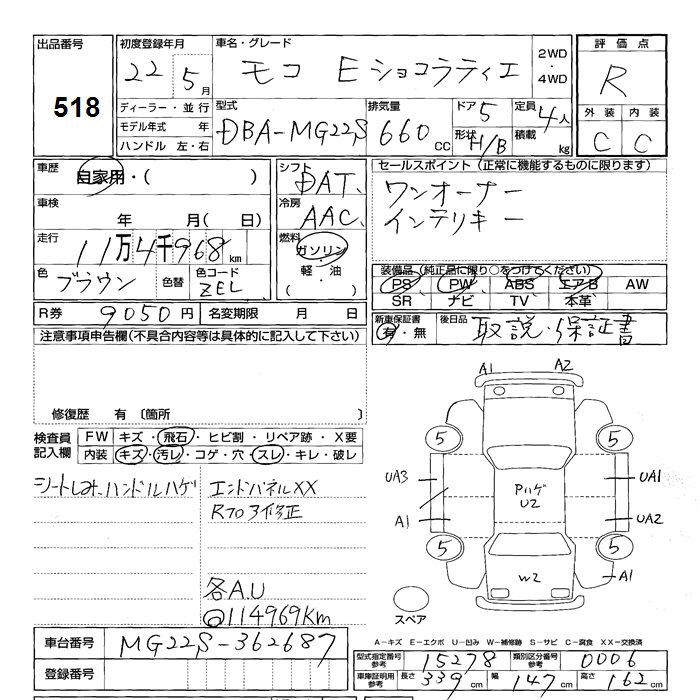 出品番号
518
初度登録年月
22年 5月
ディーラー・並行
モデル年式 年
ハンドル 左・右
車名・グレード
モコ Eショコラティエ
2WD
・
4WD
型式
DBA-MG22S
排気量
660 CC
ドア
5
形状
H/B
定員
4人
積載
kg
評価点
R
外装 内装
C C
車歴
自家用・( )
車検
年 月( 日)
走行
11万4千968km
色
ブラウン
色替
色コード
ZEL
シフト
DAT
冷房
AAC
燃料
ガソリン
・
軽・油
セールスポイント(正常に機能するものに限ります)
ワンオーナー
インテリキー
装備品(純正品に限り○をつけてください)
PS PW ABS エアB AW
SR ナビ TV 本革
R券 9050円 名変期限 月 日
新車保証書
有・無
後日品
取説・保証書
注意事項申告欄(不具合内容等は具体的に記入して下さい)
修復歴 有〔箇所 〕
検査員
記入欄
FW キズ・飛石・ヒビ割・リペア跡・X要
内装 キズ・汚レ・コゲ・穴・スレ・キレ・破レ
シートしみ、ハンドルハゲ
エンドパネルXX
Rフロア修正
各A.U
@114969Km
A1 A2
5 5
UA3 UA1
Pハゲ
U2
A1 UA2
5 5
W2 A1
スペア
A-キズ E-エクボ U-凹み W-補修跡 S-サビ C-腐食 XX-交換済
車台番号 MG22S-362687
登録番号
型式指定番号
参考
15278
類別区分番号
参考
0006
車庫証明用
参考
長さ 339cm 幅 147cm 高さ 162cm